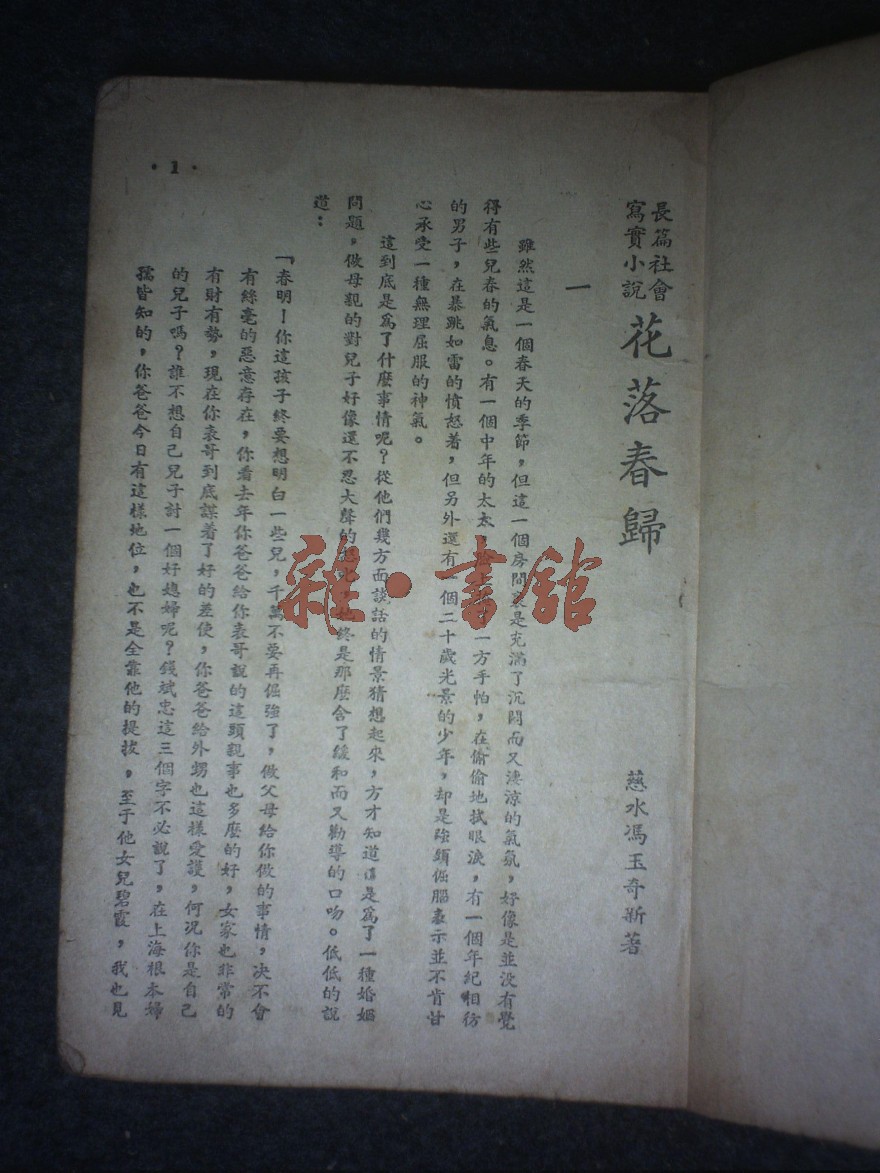 長篇社會
寫實小說
花落春歸
慈水馮玉奇新著
一
雖然這是一個春天的季節，但這一個房間裏是充滿了沉悶而又淒涼的氣氛，好像是並沒有覺
得有些兒春的氣息。有一個中年的太太，一方手帕，在偷偷地拭眼淚，有一個年紀相彷
的男子，在暴跳如雷的憤怒着，但另外還有一個二十歲光景的少年，却是強頭倔腦表示並不肯甘
心承受一種無理屈服的神氣。
這到底是爲了什麼事情呢？從他們幾方面談話的情景猜想起來，方才知道這是爲了一種婚姻
問題，做母親的對兒子好像還不忍大聲的終是那麼含了緩和而又勸導的口吻。低低的說
道：
「春明！你這孩子終要想明白一些兒，千萬不要再倔強了，做父母給你做的事情，决不會
有絲毫的惡意存在，你看去年你爸爸給你表哥說的這頭親事也多麼的好，女家也非常的
有財有勢，現在你表哥到底謀着了好的差使，你爸爸給外甥也這樣愛護，何況你是自己
的兒子嗎？誰不想自己兒子討一個好媳婦呢？錢斌忠這三個字不必說了，在上海根本婦
孺皆知的，你爸爸今日有這樣地位，也不是全靠他的提拔，至于他女兒碧霞，我也見
·1·
雜·書館